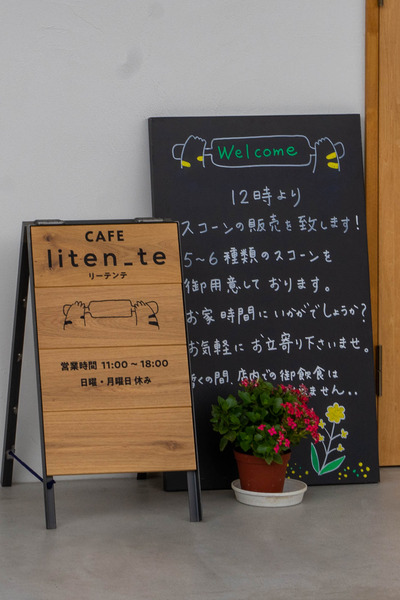 CAFE
liten_te
リーテンテ
営業時間 11:00〜18:00
日曜・月曜日休み
Welcome
12時より
スコーンの販売を致します!
5〜6種類のスコーンを
御用意しております。
お家時間にいかがでしょうか?
お気軽にお立寄り下さいませ。
くの間、店内での御飲食は
ません。。